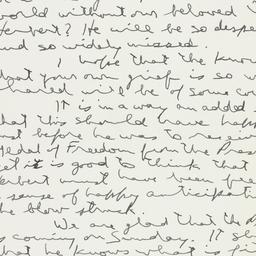 world without our beloved
Herbert? He will be so despe
and so widely missed.
I hope that the know
that your own grief is so w
shared will be of some co
It is in a way an added s
that this should have happ
just before he was to receive
Medal of Freedom from the Pres
yet it is good to think that
Herbert must have been free
a sense of happy anticipati
the blow struck.
We are glad that the
is coming on Sunday. It s
that he knows what is fi